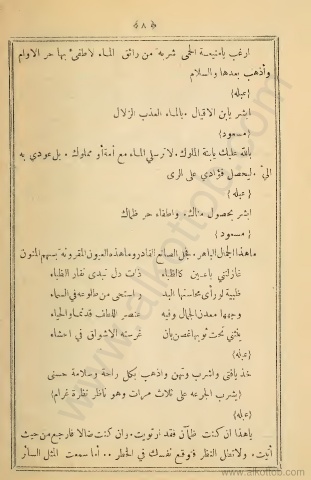 ﴿ ٨ ﴾
ارغب يامنيعة الحمى شربة من رائق الماء لاطفئ بها حر الاوام
وأذهب بعدها والسلام
{عبله}
ابشر يابن الاقيال . بالماء العذب الزلال
{مسعود}
بالله عليك يابنة الملوك . لاترسلي الماء مع أمة أو مملوك . بل عودي به
الىّ . ليحصل فؤادي على الرى
{عبله}
ابشر بحصول مناك . واطفاء حر ظماك
{مسعود}
ماهذا الجمال الباهر . فجل الصانع القادر وماهذه العيون المقرونة بسهم المنون
غازلتني باعين كالظباء ذات دل تبدى نفار الظباء
ظبية لو رأى محاسنها البدر و استحى من طلوعه في السماء
وجهها معدن الجمال وفيه عنصر اللطائف قد نما والحياء
ينثني تحت ثوبها غصن بان غرسته الاشواق في احشاء
{عبله}
خذ يافتى واشرب وتهن واذهب بكل راحة وسلامة حسنى
(يشرب الجرعه على ثلاث مرات وهو ناظر نظرة غرام)
{عبله}
ياهذا ان كنت ظمآن فقد ارتويت . وان كنت ضالا فارجع من حيث
أتيت . ولاتطل النظر فتوقع نفسك في الخطر .. أما سمعت المثل السائر
www.alkottob.com
www.alkottob.com